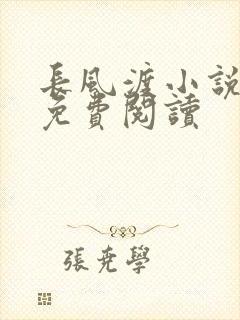 長風渡小說
免費閱讀
張堯學